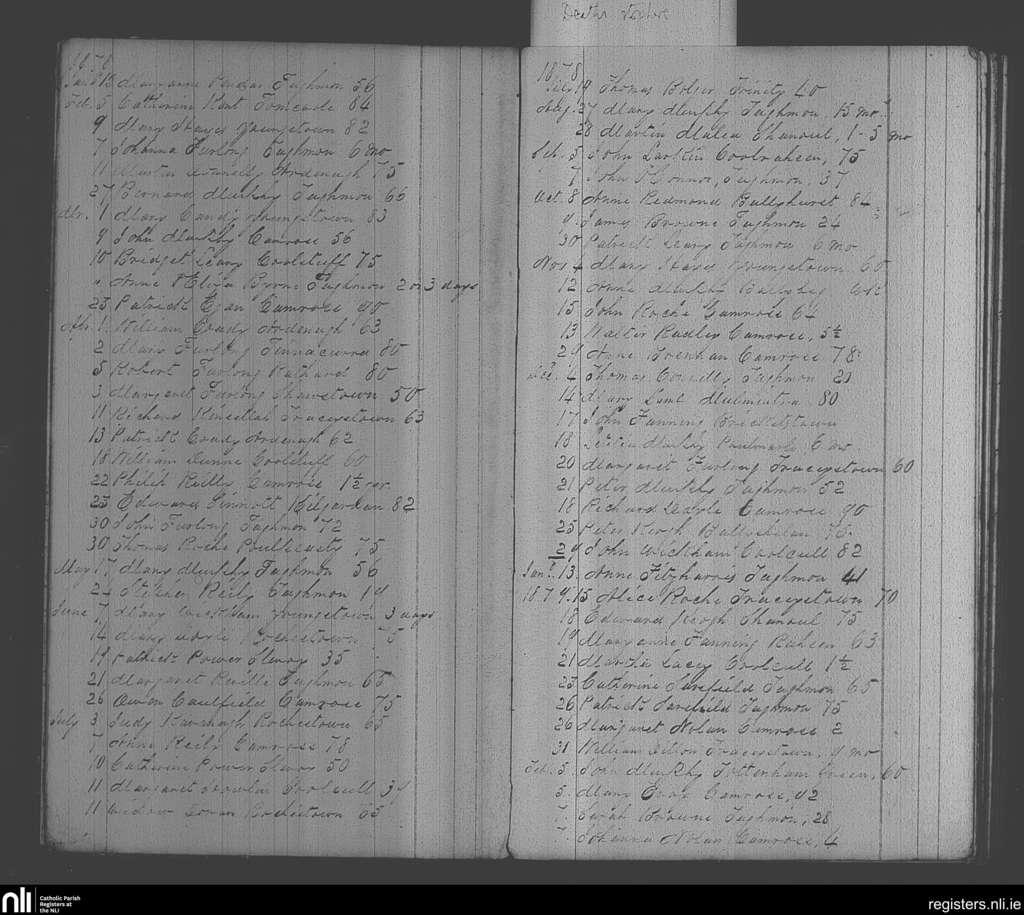 1878
Jan. Maryanne Taghmon 56
Feb. 5 Catherine Kent 84
9 Mary Hayes Youngstown 82
7 Johanna Furlong Taghmon 6 mo
11 Martin Ardenagh 75
27 Bernard Murphy Taghmon 66
Mr. 1 Mary Candy Youngstown 83
9 John Murphy Camross 56
10 Bridget Leary Coolstuff 75
" Anne & Eliza Byrne Taghmon 2 or 3 days
23 Patrick Egan Camross 40
Apr. 1 William Coady Ardenagh 63
2 Mary Furlong 80
5 Robert Furlong Raheard 80
3 Margaret Furlong Shawstown 50
11 Richard Kinsellah Traceystown 63
13 Patrick Coady Ardenagh 62
18 William Dunne 60
22 Philip Reilly Camross 1½ yr
23 Edward Sinnott Kilgarvan 82
30 John Furlong Taghmon 72
30 Thomas Roche 75
May 17 Mary Murphy Taghmon 56
24 Stephen Reily Taghmon 14
June 7 Mary Wickham Youngstown 3 days
14 Mary Doyle Rochestown 75
19 Patrick Power Slevoy 35
21 Margaret Reville Taghmon 65
26 Owen Caulfield Camross 75
July 3 Judy Kavanagh Rochestown 65
7 Anne Reily Camross 78
10 Catherine Power Slevoy 50
11 Margaret Coolcull 34
11 Widow Rochestown 65
Deaths
1878
July 19 Thomas Bolger Trinity 40
Aug. 27 Mary Murphy Taghmon, 15 mo
28 Martin Shanoul, 1-5 mo
Sep. 5 John Larkin Coolraheen, 75
7 John O'Connor, Taghmon, 37
Oct. 8 Anne Redmond Ballyhurst 84
9. James Browne Taghmon 24
30 Patrick Leary Taghmon 6 mo
Nov 4 Mary Hayes Youngstown 60
12 Anne Murphy
15 John Roche Camross 64
13 Walter Radley Camross, 5½
29 Anne Brenhan Camross 78
Dec. 4 Thomas Connelly Taghmon 21
14 Mary Lamb Mulmintra 80
17 John Fanning Brickettstown
18 Murphy 6 mo
20 Margaret Furlong Traceystown 60
21 Peter Murphy Taghmon 52
18 Richard Doyle Camross 90
25 Peter Keogh 75
29 John Wickham Coolcull 82
Jany. 13. Anne Fitzharris Taghmon 41
1879. 15 Alice Roche Traceystown 70
18 Edward Keogh Shanoul 75
19 Maryanne Fanning Raheen 63
21 Martin Lacey Coolcull 1½
23 Catherine Sarsfield Taghmon 65
26 Patrick Sarsfield Taghmon 75
26 Margaret Nolan Camross 2
31 William Traceystown, 4 mo
Feb. 5. John Murphy Tottenham Green, 60
5. Mary Camross, 42
7. Sarah Browne Taghmon, 28
7. Johanna Nolan Camross, 4
nli
Catholic Parish
Registers at
the NLI
registers.nli.ie